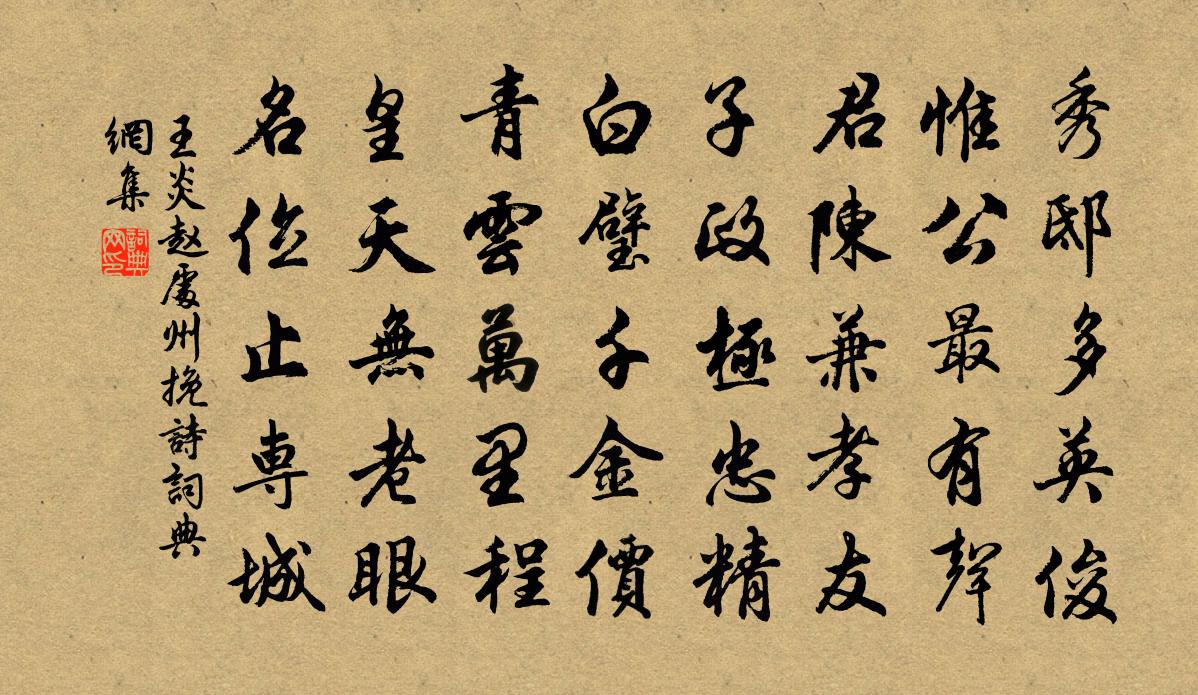 秀邸多英俊
惟公最有聲
君陳兼孝友
子政極忠精
白璧千金價
青雲萬里程
皇天無老眼
名位止專城
王炎赵處州挽詩詞典
網集
詞典
网印